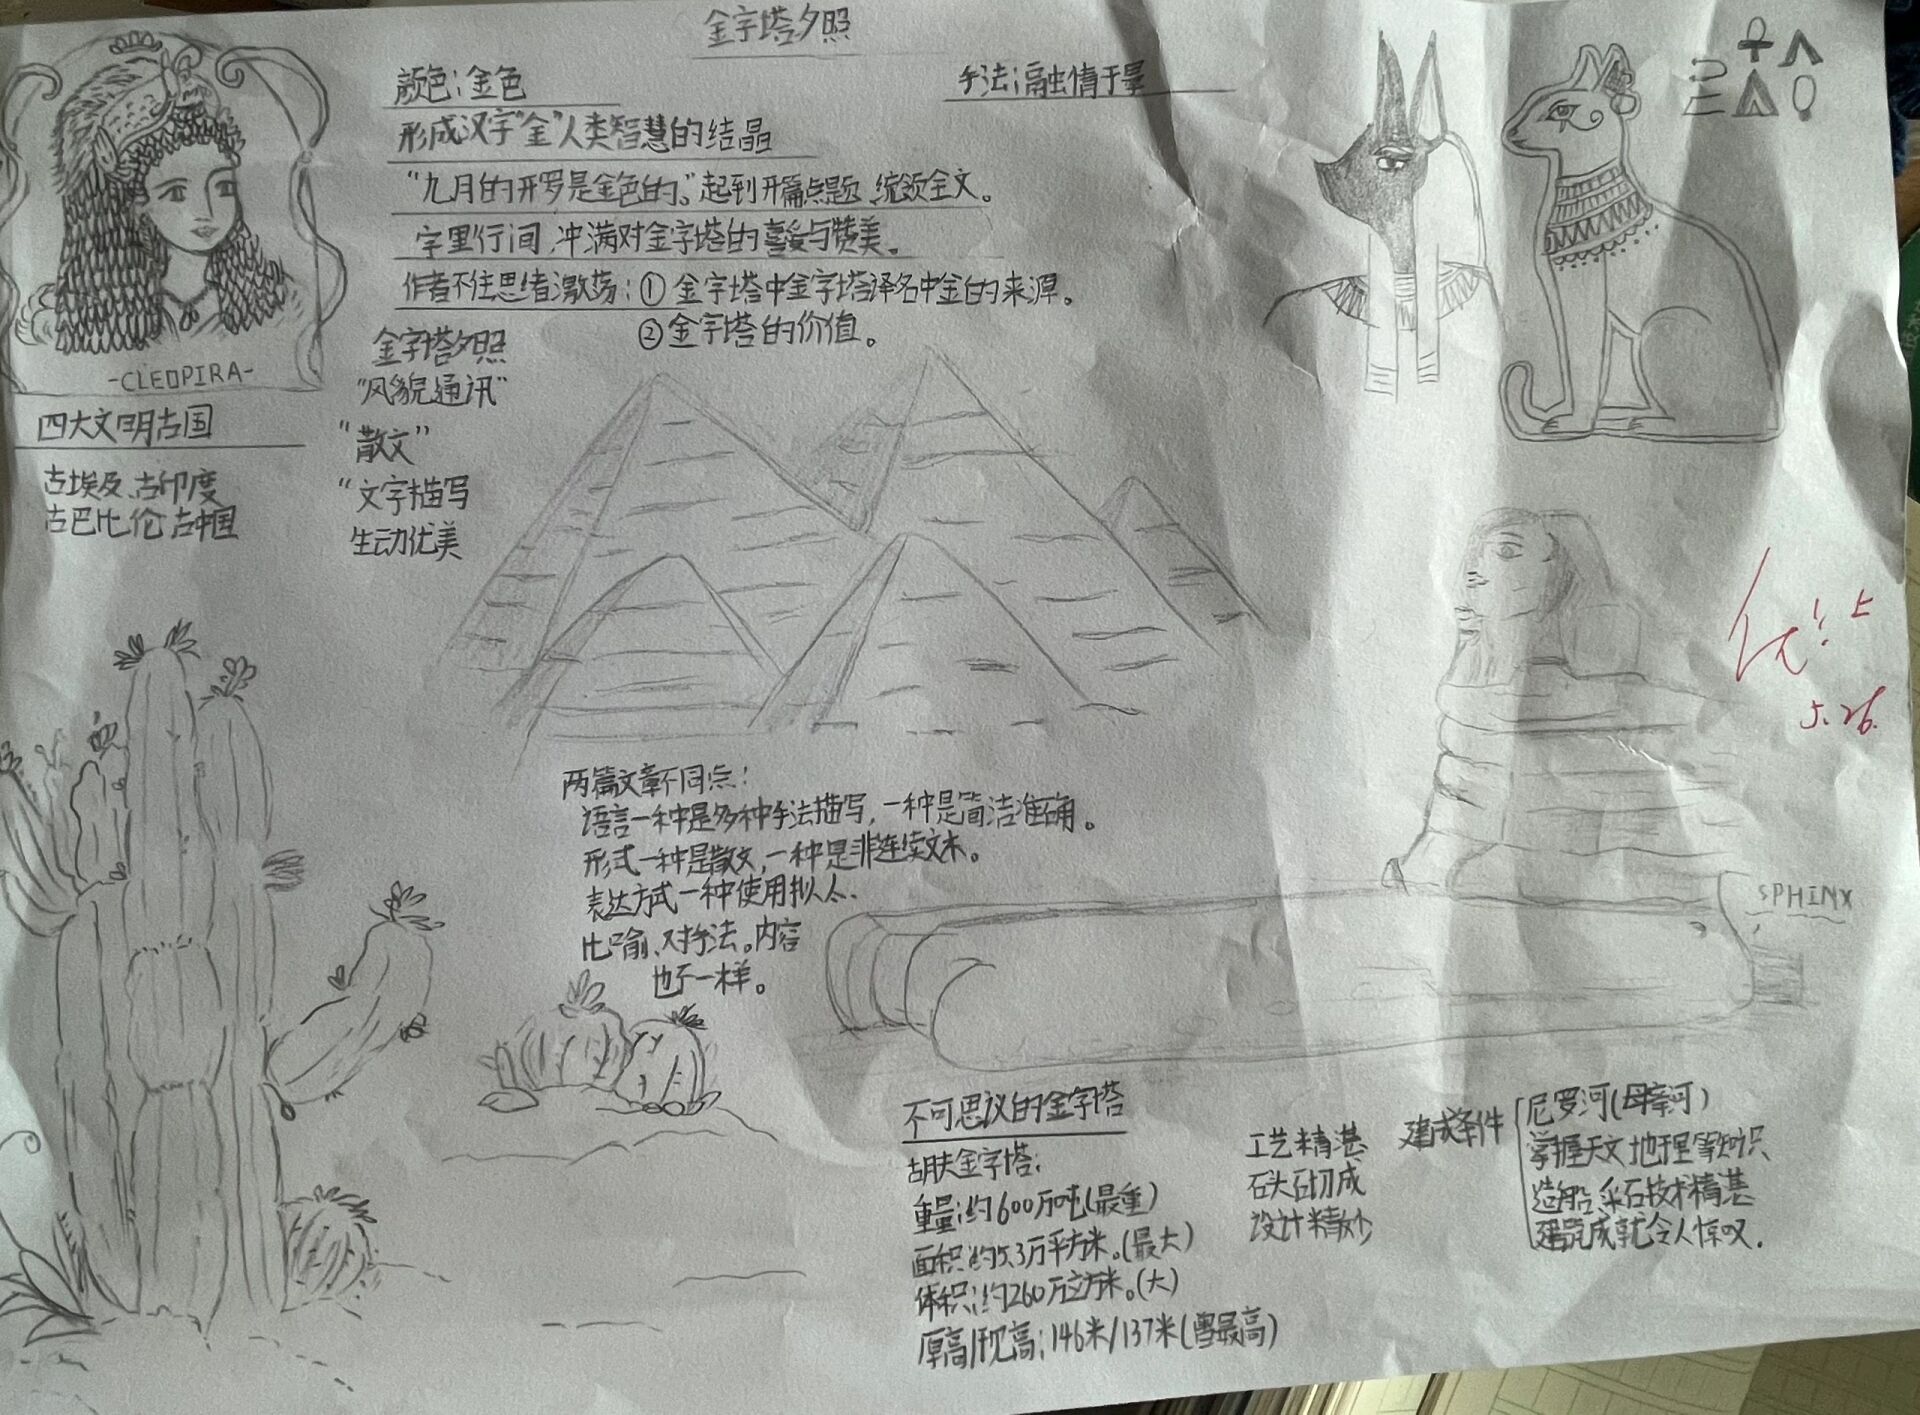 金字塔夕照
颜色：金色
手法：融情于景
形成汉字“金”人类智慧的结晶
“九月的开罗是金色的。”起到开篇点题、统领全文。
字里行间，冲满对金字塔的喜爱与赞美。
作者不住思者激荡：① 金字塔中金字塔译名中金的来源。
② 金字塔的价值。
-CLEOPIRA-
四大文明古国
古埃及、古印度
古巴比伦、古中国
金字塔夕照
“风貌通讯”
“散文”
“文字描写
生动优美
优！上
5.26.
两篇文章不同点：
语言一种是多种手法描写，一种是简洁准确。
形式一种是散文，一种是非连续文本。
表达方式一种使用拟人、
比喻、对手法。内容
也不一样。
SPHINX
不可思议的金字塔
胡夫金字塔：
重量：约600万吨(最重)
面积：约5.3万平方米。(最大)
体积：约260万立方米。(大)
原高/现高：146米/137米(曾最高)
工艺精湛
石头石切成
设计精妙
建成条件
尼罗河(母亲河)
掌握天文地理等知识
造船、采石技术精湛
建筑成就令人惊叹.